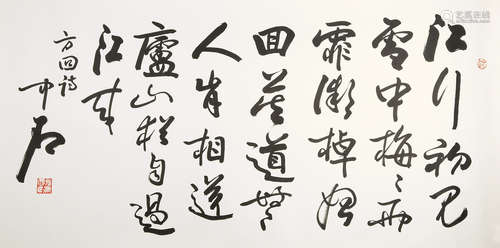 江行初見
雪中梅〻雨
霏微棹始
回莫道無
人肯相送
廬山猶自過
江來
方回詩
中石